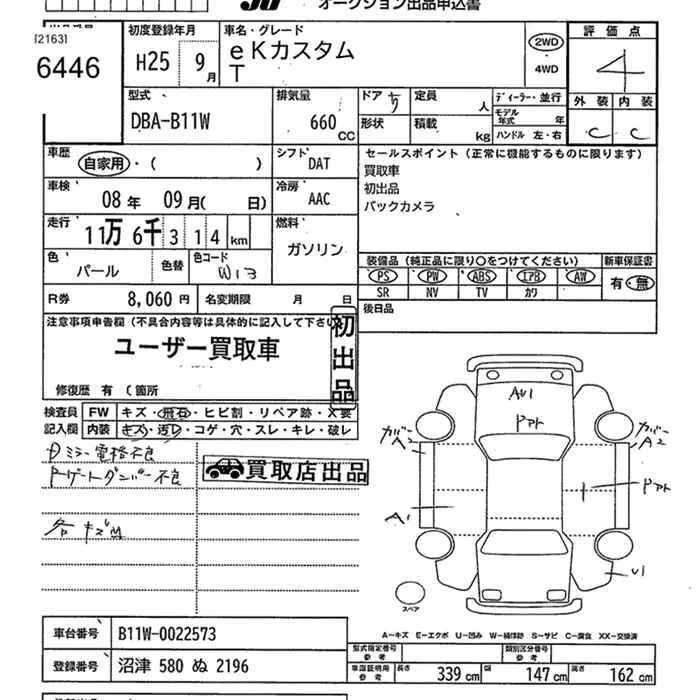 オークション出品申込書
[2163]
6446
初度登録年月
H25 9月
車名・グレード
eKカスタム
T
2WD
4WD
評価点
4
外装 内装
C C
型式
DBA-B11W
排気量
660 CC
ドア 5
定員 人
ディーラー・並行
モデル年式 年
形状
積載 kg
ハンドル 左・右
車歴
自家用・( )
シフト
DAT
セールスポイント(正常に機能するものに限ります)
買取車
初出品
バックカメラ
車検
08年 09月( 日)
冷房
AAC
走行
11万6千314km
燃料
ガソリン
色
パール
色替
色コード
W13
装備品(純正品に限り○をつけてください)
新車保証書
PS PW ABS エアB AW
有・無
SR NV TV カワ
R券
8,060円
名変期限 月 日
後日品
注意事項申告欄(不具合内容等は具体的に記入して下さい)
ユーザー買取車
初出品
修復歴 有 (箇所
検査員
記入欄
FW キズ・飛石・ヒビ割・リペア跡・X要
内装 キズ・汚レ・コゲ・穴・スレ・キレ・破レ
Dミラー電格不良
買取店出品
各キズM
AU1
ドアト
カバーA2
カバーA2
A1
ドアト
U1
スペア
A-キズ E-エクボ U-凹み W-補修跡 S-サビ C-腐食 XX-交換済
車台番号
B11W-0022573
登録番号
沼津 580 ぬ 2196
型式指定番号
参考
類別区分番号
参考
車庫証明用
参考
長さ 339 cm
幅 147 cm
高さ 162 cm